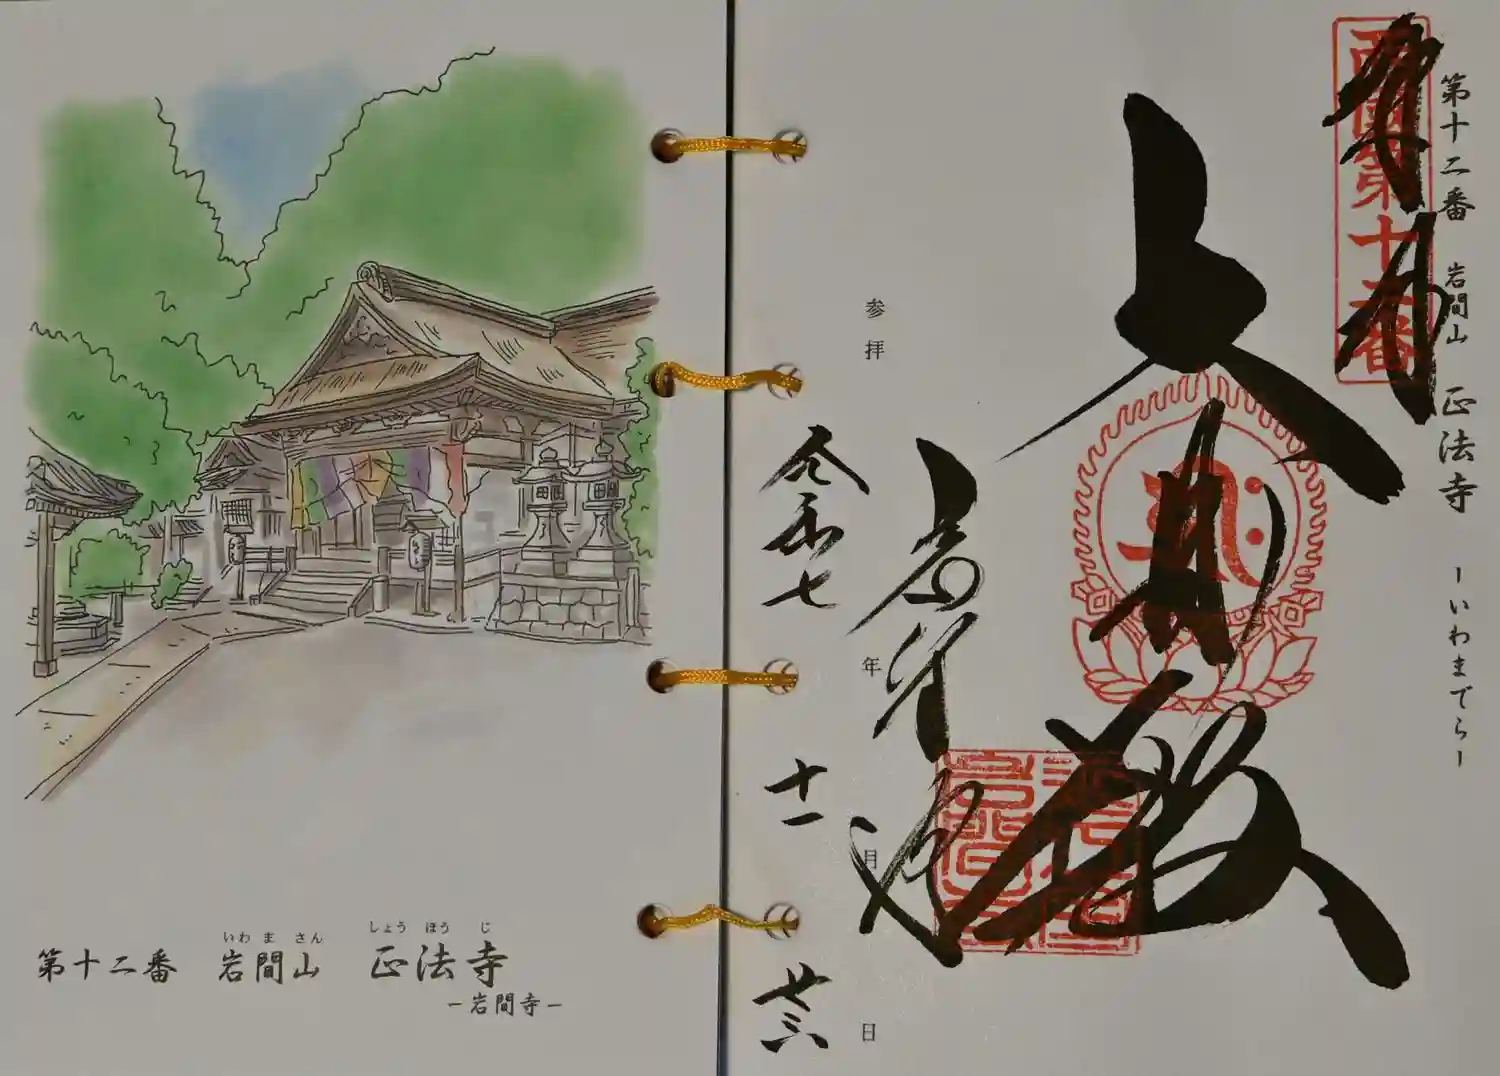 第十二番 岩間山 正法寺 -いわまでらー
奉拝
西国第十二番
大悲殿
岩間寺
参拝 令和七年 十一月 廿三日
いわ ま さん しょう ほう じ
第十二番 岩間山 正法寺
-岩間寺-